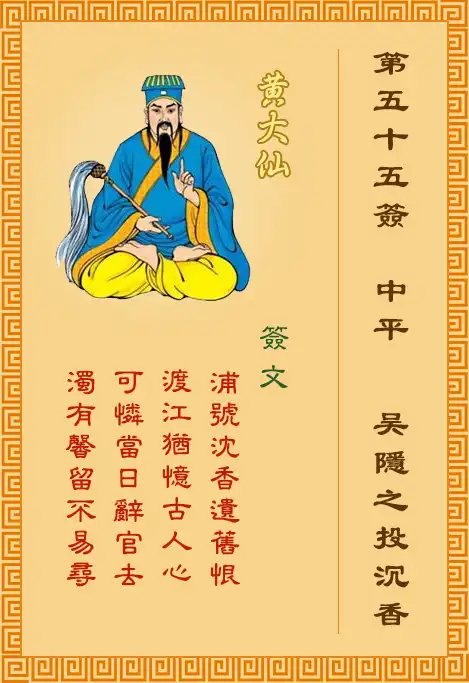 第五十五簽 中平 吴隱之投沉香
黄大仙
簽文
浦號沈香遺舊恨
渡江猶憶古人心
可憐當日辭官去
濁有馨留不易尋